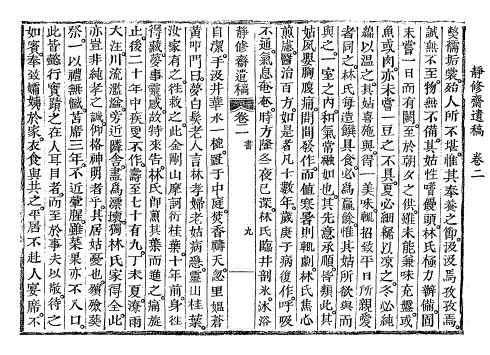 靜修齋遺稿 卷二
襦垢裳殆人所不堪惟其奉養之節汲汲焉孜孜焉
誠無不至物無不備其姑性嗜饅頭林氏極力辦備
未嘗一日而有闕至於朝夕之供雖未能兼味充盤或
魚或肉亦未嘗一豆之不具夏必細以凉之冬必純
綿以溫之其姑喜施與得一美味輒招致平日所親愛
者同之林氏每造饌具食必爲贏餘惟其姑所欲與而
與之一室之內和氣常融如也其先意承順皆類此其
姑夙嬰胸腹痛間間發作而值寒暑則輒劇林氏焦心
煎慮醫治百方如是者凡十數年歲庚子病復作呼吸
不通氣息奄奄時方隆冬夜已深林氏臨井剖氷沐浴
靜修齋遺稿 卷二 書 九
自潔于汲井華水一椀置于中庭焚香禱天忽里嫗蒼
黃叩門曰夢白髮老人言林孝婦老姑病急靈山桂葉
汝家有之往救之此金剛山摩訶衍桂葉十年前身往
得藏夢事靈感故特來告林氏卽熏其葉而進之痛旋
止後二十年中疾更不作壽至七十有九丁未夏潦雨
大注川流濫溢旁近隣舍盡爲漂壞獨林氏家得全此
亦豈非純孝之誠俯格神明者乎其居姑憂也殯殮葬
祭一以禮無憾苫席三年不近葷腥雖菜果亦不入口
此皆懿行實蹟之在人耳目者而至於事夫以敬待之
如賓奉孀於家衣食與共之平居不赴人宴席不